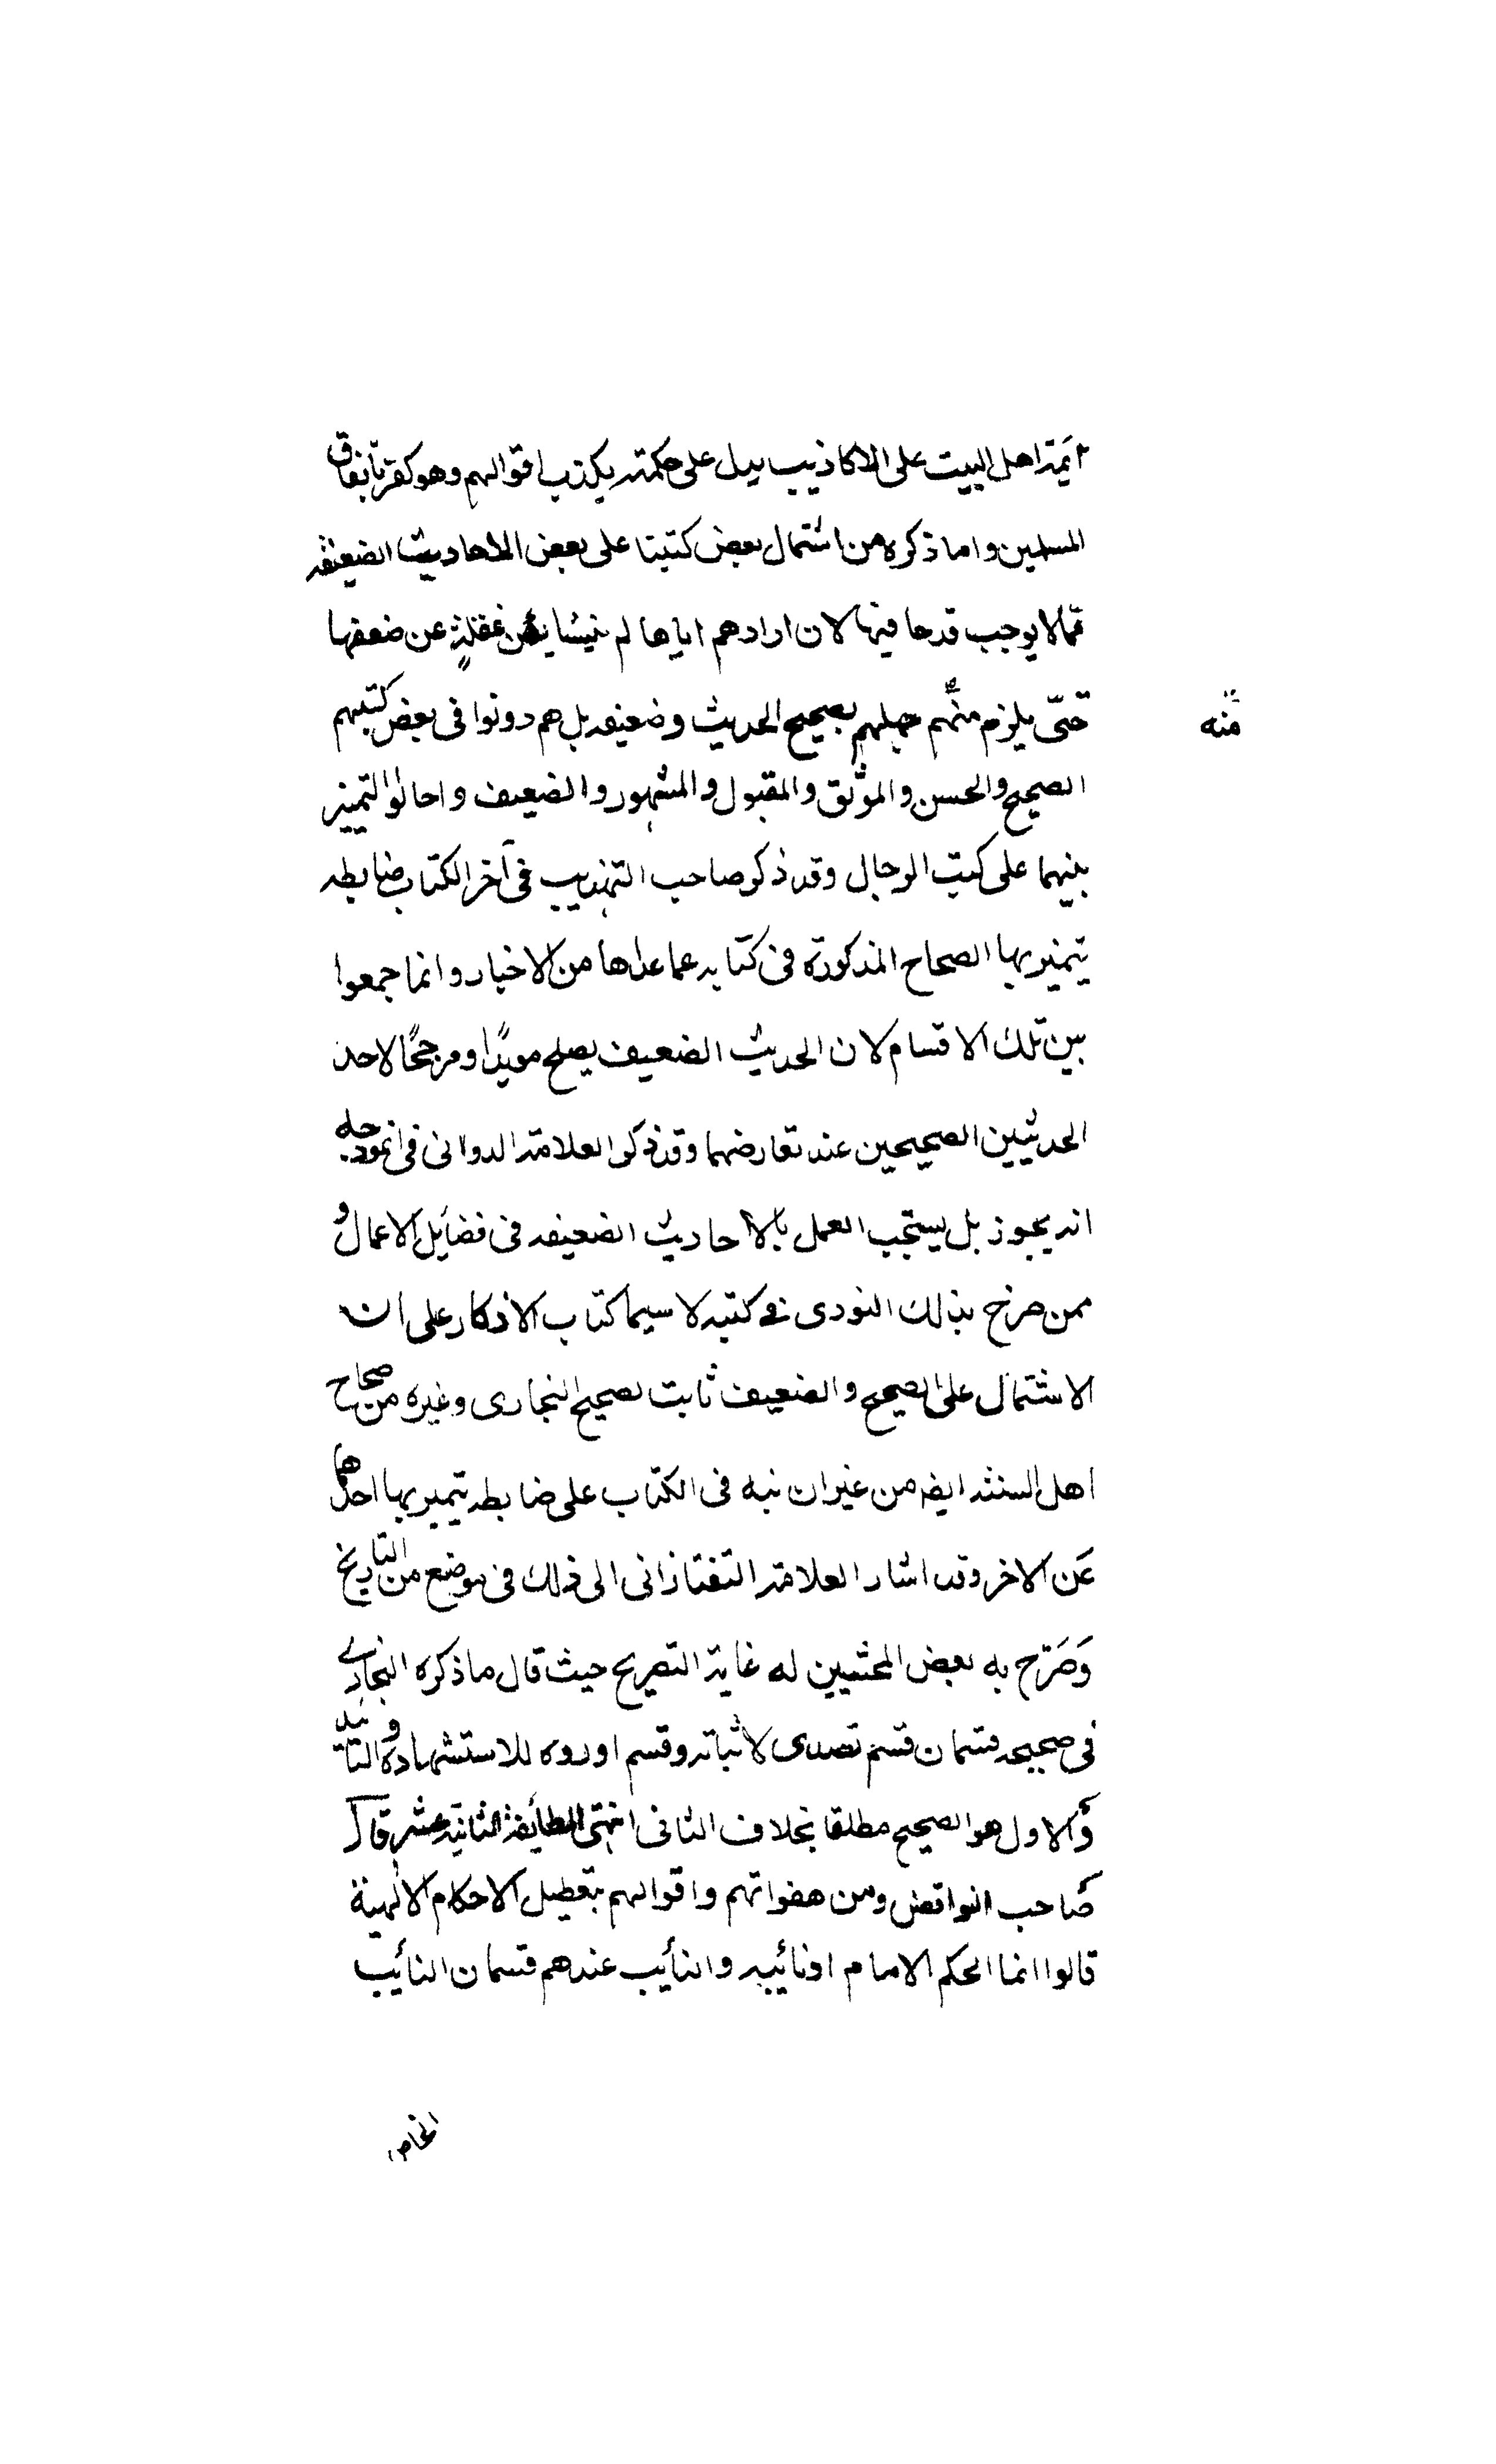 ائمة اهل البيت على الاكاذيب يدل على حكمته بكذب اقوالهم وهو كفر باتفاق
المسلمين واما ذكره من اشتمال بعض كتبنا على بعض الاحاديث الضعيفه
فمما لا يوجب قدحا فيها لان ايرادهم اياها لم ينشا من غفلةٍ عن ضعفها
حتّى يلزم منهم جهلهم بصحيح الحديث وضعيفه بل هم دونوا فى بعض كتبهم
منه
الصحيح والحسن والموثق والمقبول والمشهور والضعيف واحالوا التميز
بينهما على كتب الرجال وقد ذكر صاحب التهذيب فى آخر الكتاب ضابطه
يتميز بها الصحاح المذكورة فى كتابه عما عداها من الاخبار وانما جمعوا
بين تلك الاقسام لان الحديث الضعيف يصلح مويدًا ومرجحًا لاحد
الحديثين الصحيحين عند تعارضهما وقد ذكر العلامة الدوانى فى انموذجه
انه يجوز بل يستحب العمل بالاحاديث الضعيفه فى فضايل الاعمال و
ممن صرح بذالك النووى فى كتبه لا سيما كتاب الاذكار على ان
الاشتمال على الصحيح والضعيف ثابت لصحيح البخارى وغيره من صحاح
اهل السنة ايضا من غير ان نبه فى الكتاب على ضابطه يتميز بها احدهما
عَن الاخر وقد اشار العلامة التفتازانى الى ذلك فى موضع من التاريخ
وَصَرّح به بعض المحشيين له غاية التصريح حيث قال ما ذكره البخارى
فى صحيحه قسمان قسم تصدى لاثباته وقسم اورده للاستشهاد والتائيد
والاول هو الصحيح مطلقا بخلاف الثانى انتهى الطايفة الثانية عشر قال
صاحب النواقض ومن هفواتهم واقوالهم بتعطيل الاحكام الالهية
قالوا انما الحكم الامام او نائبيه والنأيب عندهم قسمان النأيب
الخاص